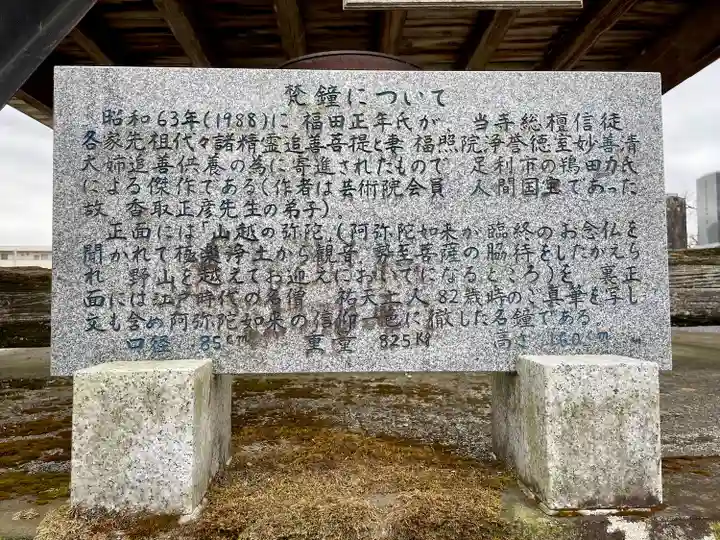 梵鐘について
昭和63年(1988)に 福田正年氏が 当寺総檀信徒
各家先祖代々諸精霊追善菩提と妻 福照院浄誉徳室妙善清
大姉追善供養の為に寄進されたもので 足利市の鴇田力氏
による傑作である(作者は芸術院会員 人間国宝であった
故 香取正彦先生の弟子)。
正面には「山越の弥陀」(阿弥陀如来が臨終のお念仏を
聞かれて極楽浄土から観音 勢至菩薩の脇待をしたがえら
れ 野山を越えてお迎えにおいでになるところ)を 裏正
面には江戸時代の名僧 祐天上人 82歳時のご真筆を写し
文も含め阿弥陀如来の信仰一色に徹した名鐘である
口径 85cm 重量 825Kg 高さ 160cm